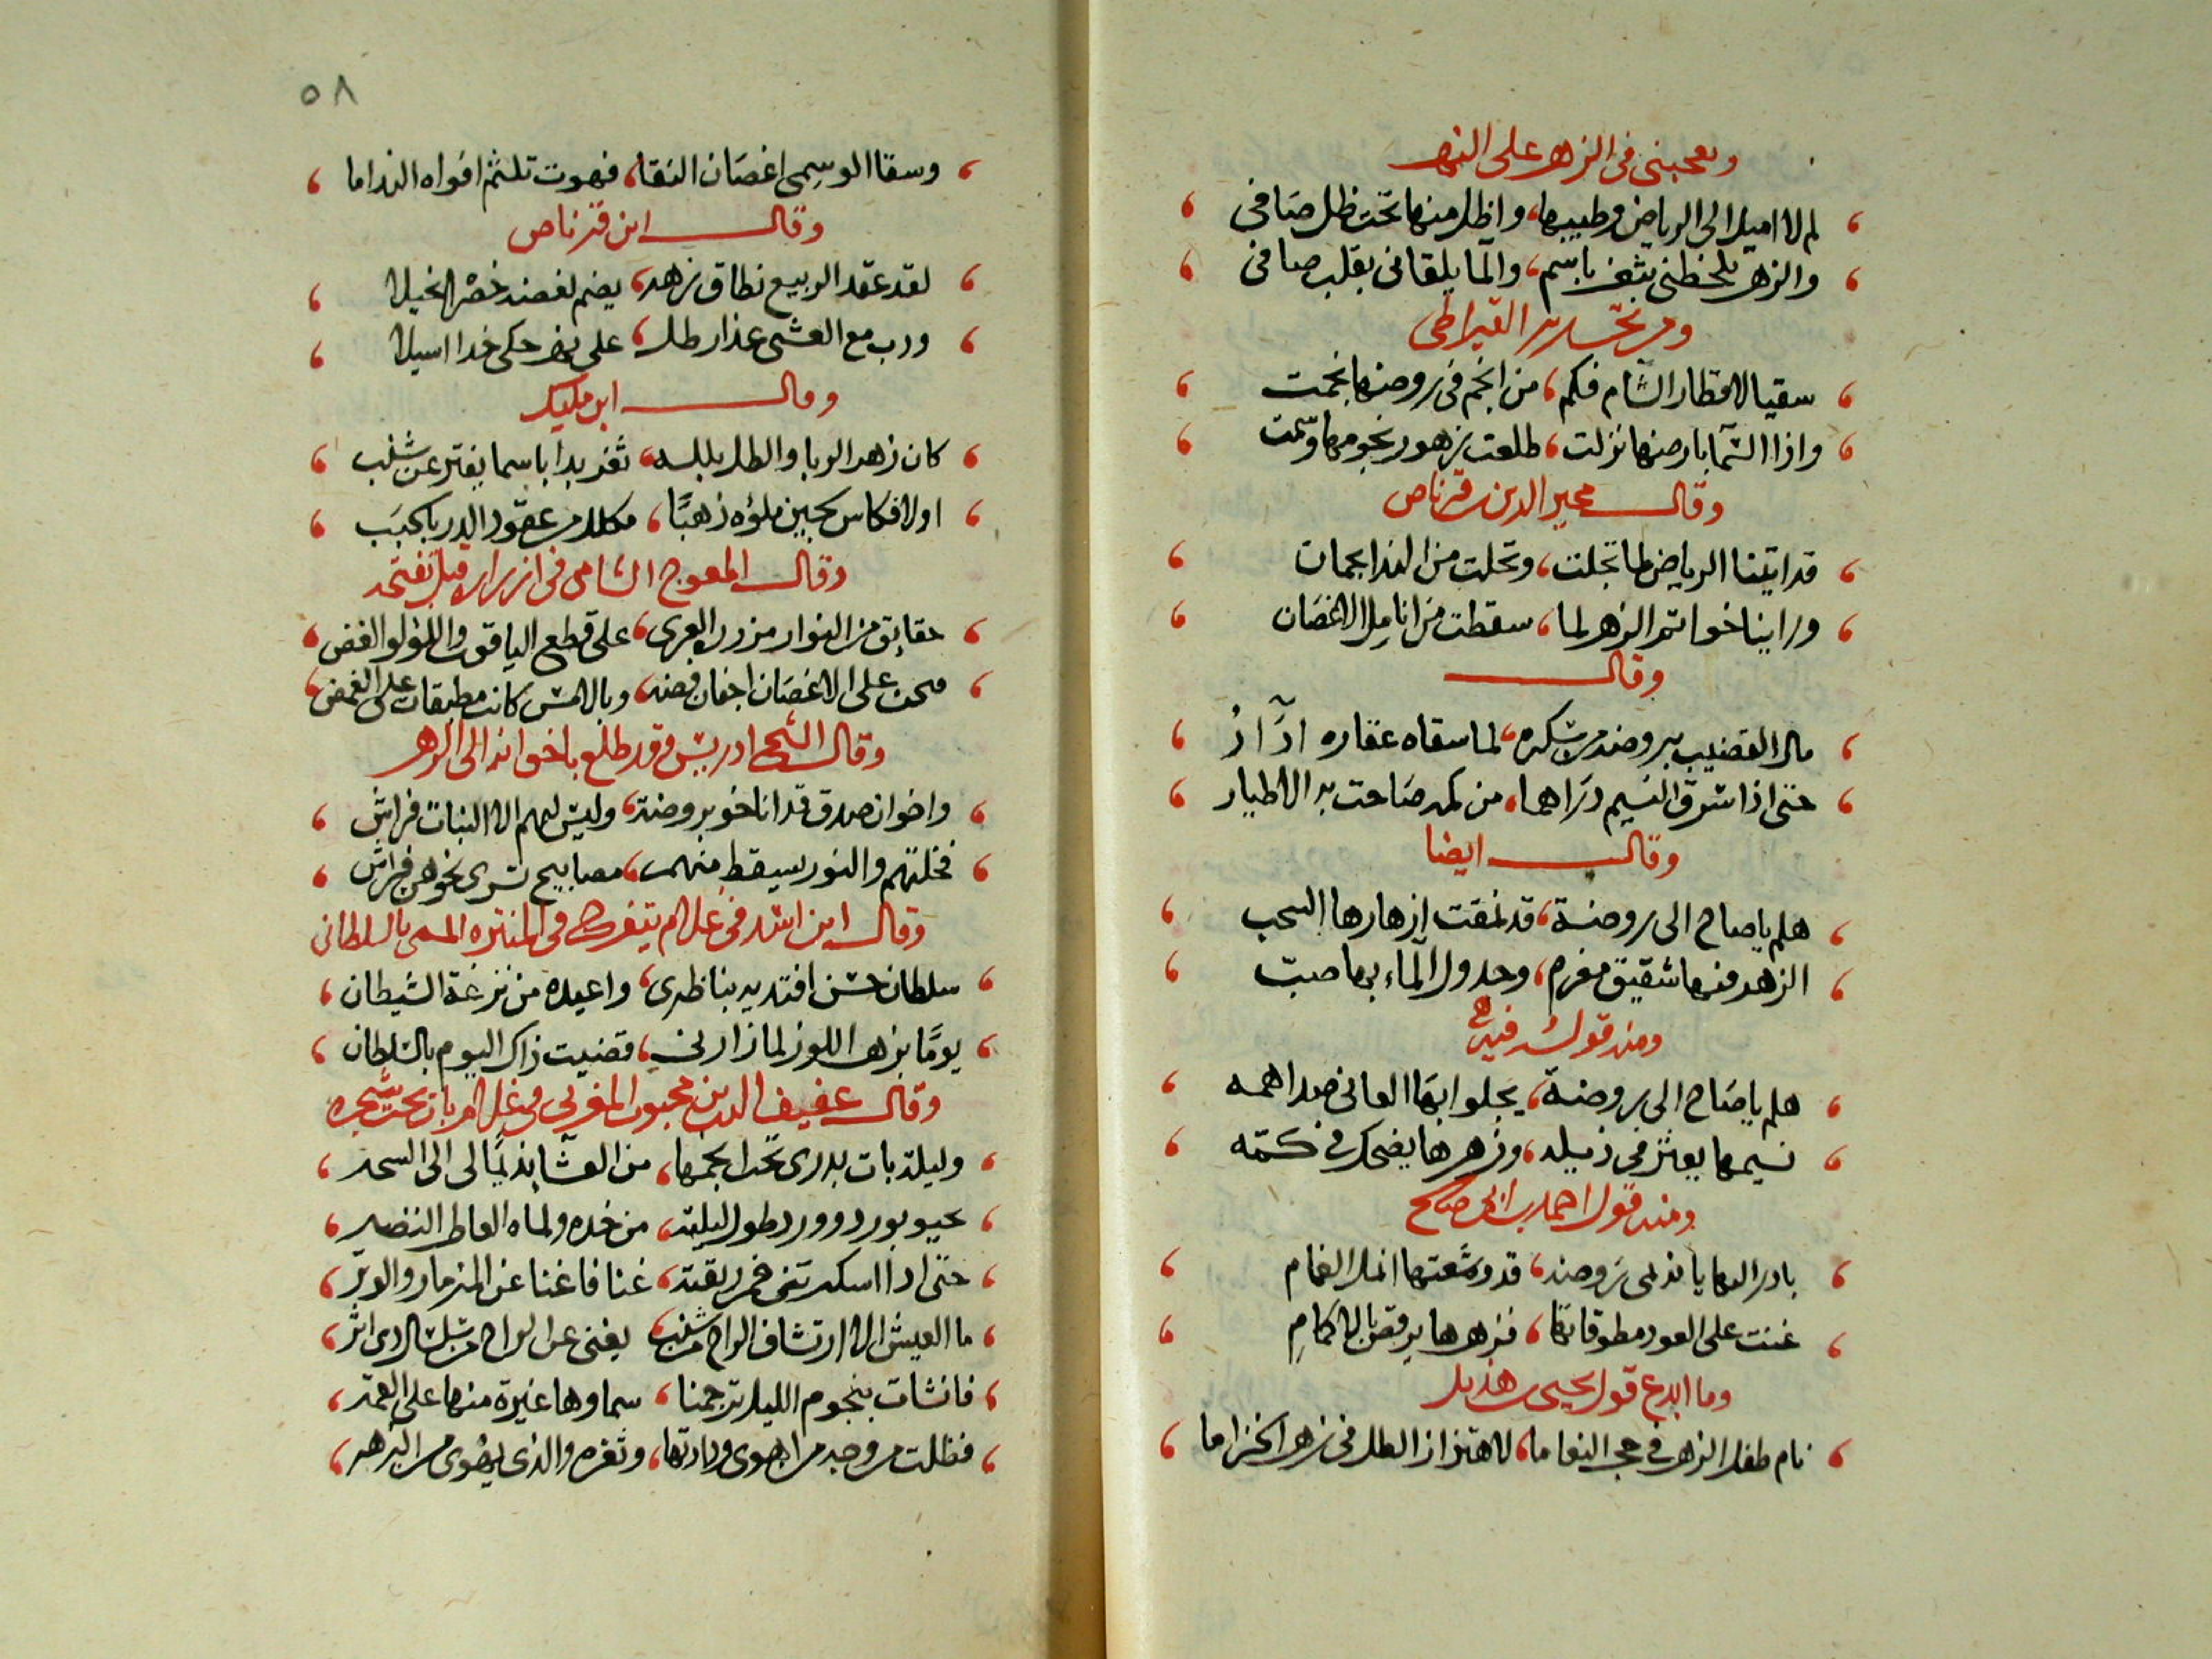 ويعجبني في الزهر على النهر
لم لا اميل الى الرياض وطيبها، واظل منها تحت ظل صافي
والزهر يلحظني بثغر باسم، والما يلقاني بقلب صافي
القيراطي
سقيا لاقطار الشام فكم، من انجم في روضها نجمت
واذا السما بارضها نزلت، طلعت زهور نجومها
وقال مجير الدين بن قرناص
قد اتينا الرياض لما تجلت، وتحلت من الندا بجمان
وراينا خواتم الزهر لما، سقطت من انامل الاغصان
وقال
مال القضيب بروضه من سكره، لما سقاه عقاره اذار
حتى اذا سرق النسيم دراهما، من كمه صاحت به الاطيار
وقال ايضا
هلم يا صاح الى روضة، قد نمقت ازهارها السحب
الزهر فيها شقيق مغرم، وجدول الماء بها صب
ومنه قوله فيه
هلم يا صاح الى روضة، يجلو ابها العاني صدا همه
نسيمها يعثر في ذيله، وزهرها يضحك في كمه
ومنه قول احمد بن صالح
بادر الى يا نديمي روضه، قد وشعتها انمل الغمام
غنت على العود مطوقاتها، فزهرها يرقص بالاكمام
وما ابدع قول يحيى بن هذيل
نام طفل الزهر في حجر النعاما، لاهتزاز الطل في زهر الخزاما
٥٨
وسقا الوسمي اغصان النقا، فهوت تلثم افواه النداما
وقال ابن قرناص
لقد عقد الربيع نطاق زهر، يضم لغصنه خصرا نحيلا
ودب مع العشي عذار طل، على نهر حكى خدا اسيلا
وقال ابن مليك
كان زهر الربا والطل بلله، ثغر بدا باسما يفتر عن شنب
اولا فكاس لجين ملؤه ذهبا، مكلل من عقود الدر بالحبب
وقال المعوج الشامي في ازرار قبل تفتحه
حقايق من النوار مزرورة العرى، على قطع الياقوت واللؤلو الغض
على الاغصان اجفان فضه، وبالامس كانت مطبقات على الغمض
وقال الشيخ ادريس وقد طلع باخوانه الى الزهر
واخوان صدق قد اناخو بروضة، وليس لهم الا النبات فراش
فخلتهم والنور يسقط منهم، مصابيح تسرى نحوهن فراش
وقال ابن اسد في غلام يتفرك في المنتزه المسمى بالسلطاني
سلطان حسن افتديه بناظري، واعيده من نزغة الشيطان
يوما بزهر اللوز لما زارني، قضيت ذاك اليوم بالسلطان
وقال عفيف الدين محبوب المغربي في غلام بات تحت شجره
وليلة بات بدري تحت انجمها، من العشا نديما لي الى السحر
بورد وورد طول ليلته، من خده ولماه العاطر النضر
حتى اذا اسكرتني خمر ريقته، غنا فاغنا عن المزمار والوتر
ما العيش الا ارتشاف الراح من شنب، يغني عن الراح من سلسال ذي اشر
فانشات بنجوم الليل ترجمنا، سماوها غيرة منها على القمر
فظلت من وجد من اهوى، وثغره والذي يهوى من الزهر